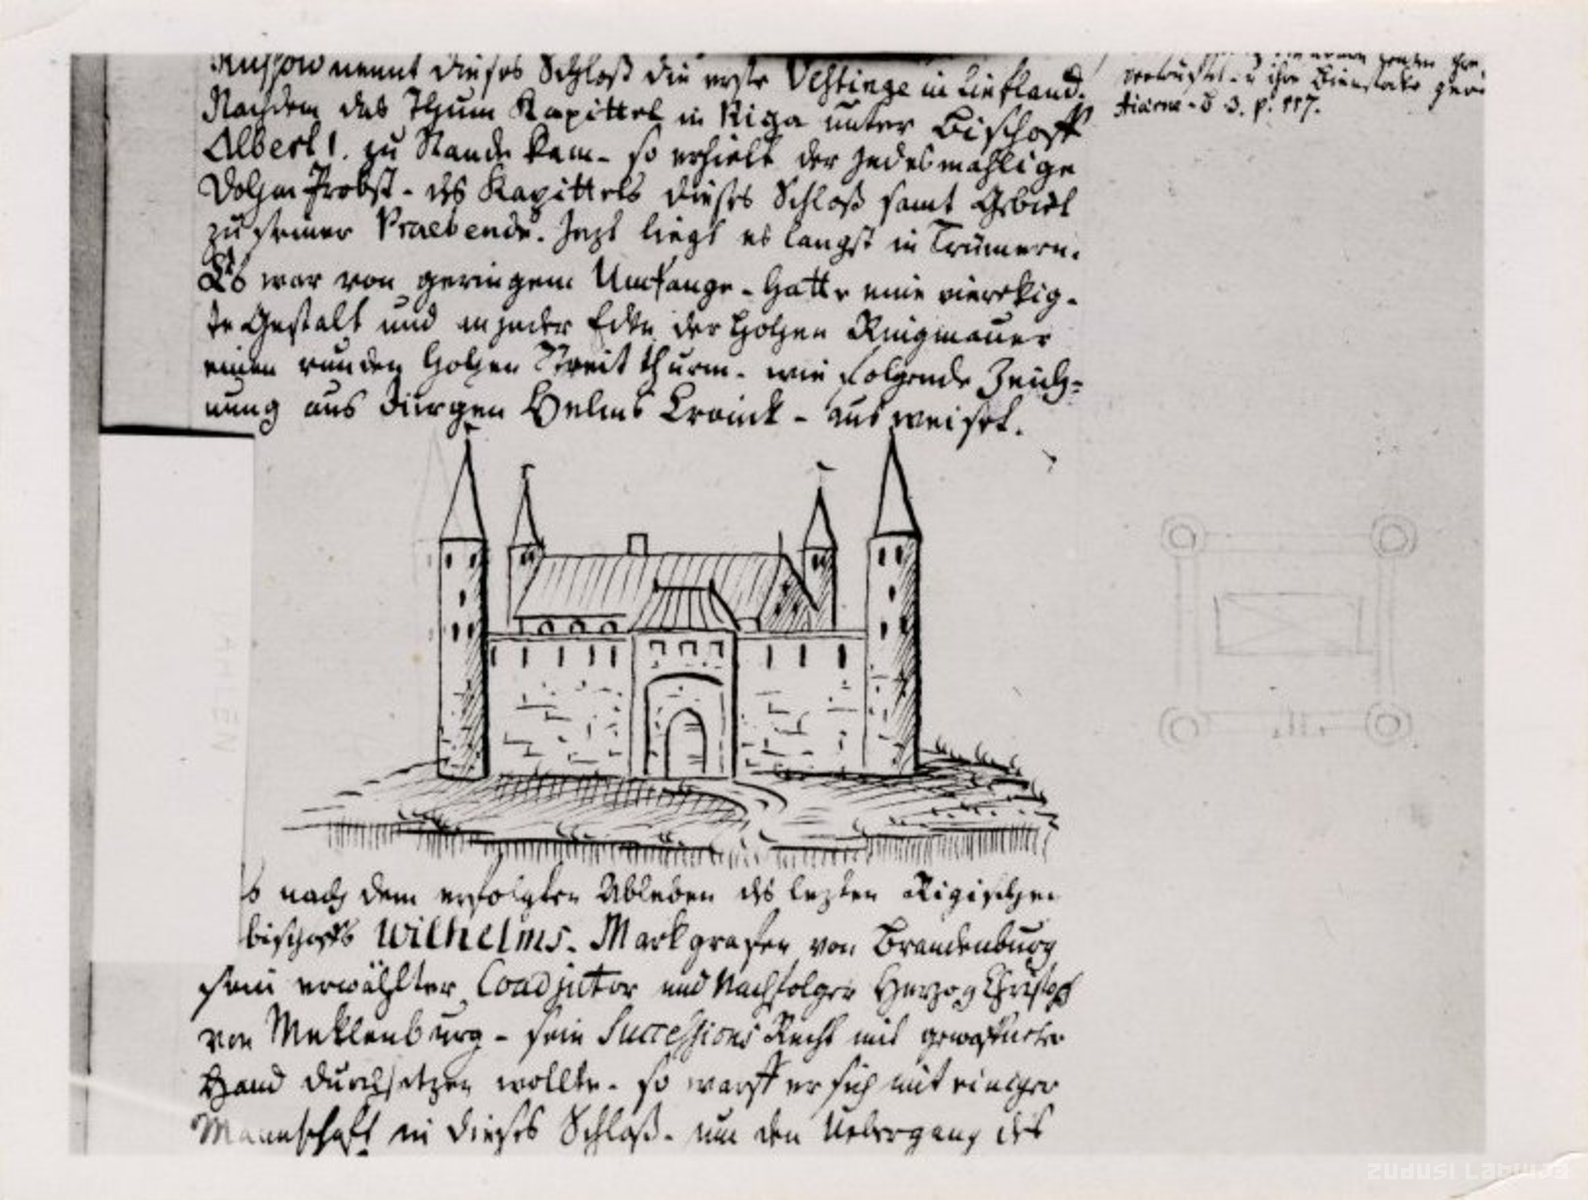 Russow nennt dieses Schloß die erste Vestinge in Liefland.
Nachdem das Thum Kapittel in Riga unter Bischoff
Albert I. zu Stande kam - so erhielt der jedesmahlige
Dohm Probst - des Kapittels dieses Schloß samt Gebiet
zu seiner Praebende. Jezt liegt es langst in Trümern.
Es war von geringem Umfange - hatte eine viereckig-
te Gestalt und an jeder Ecke der hohen Ringmauer
einen runden hohen Streit thurm - wie folgende Zeich-
nung aus Jürgen Helms Cronick - aus weiset.
verwüstet - u ihre
Hiärne - B 3. p. 117.
s nach dem erfolgten Ableben des lezten Rigischen
bischoffs Wilhelms - Markgrafen von Brandenburg
sein erwählter Coadjutor und Nachfolger Herzog Christoph
von Meklenburg - sein Successions Recht mit gewafneter
Hand durchsetzen wollte - so warff er sich mit einiger
Mannschaft in dieses Schloß - um den Uebergang des
zudusi Latvija